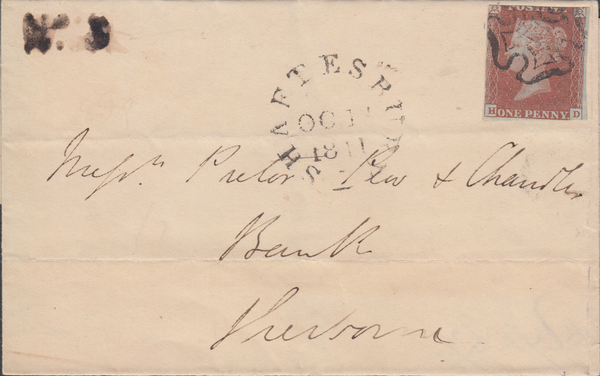 No. 3
POSTAGE
H D
ONE PENNY
SHAFTESBURY
OC 11
1841
Messrs Pretor Pew & Chandler
Bank
Sherborne